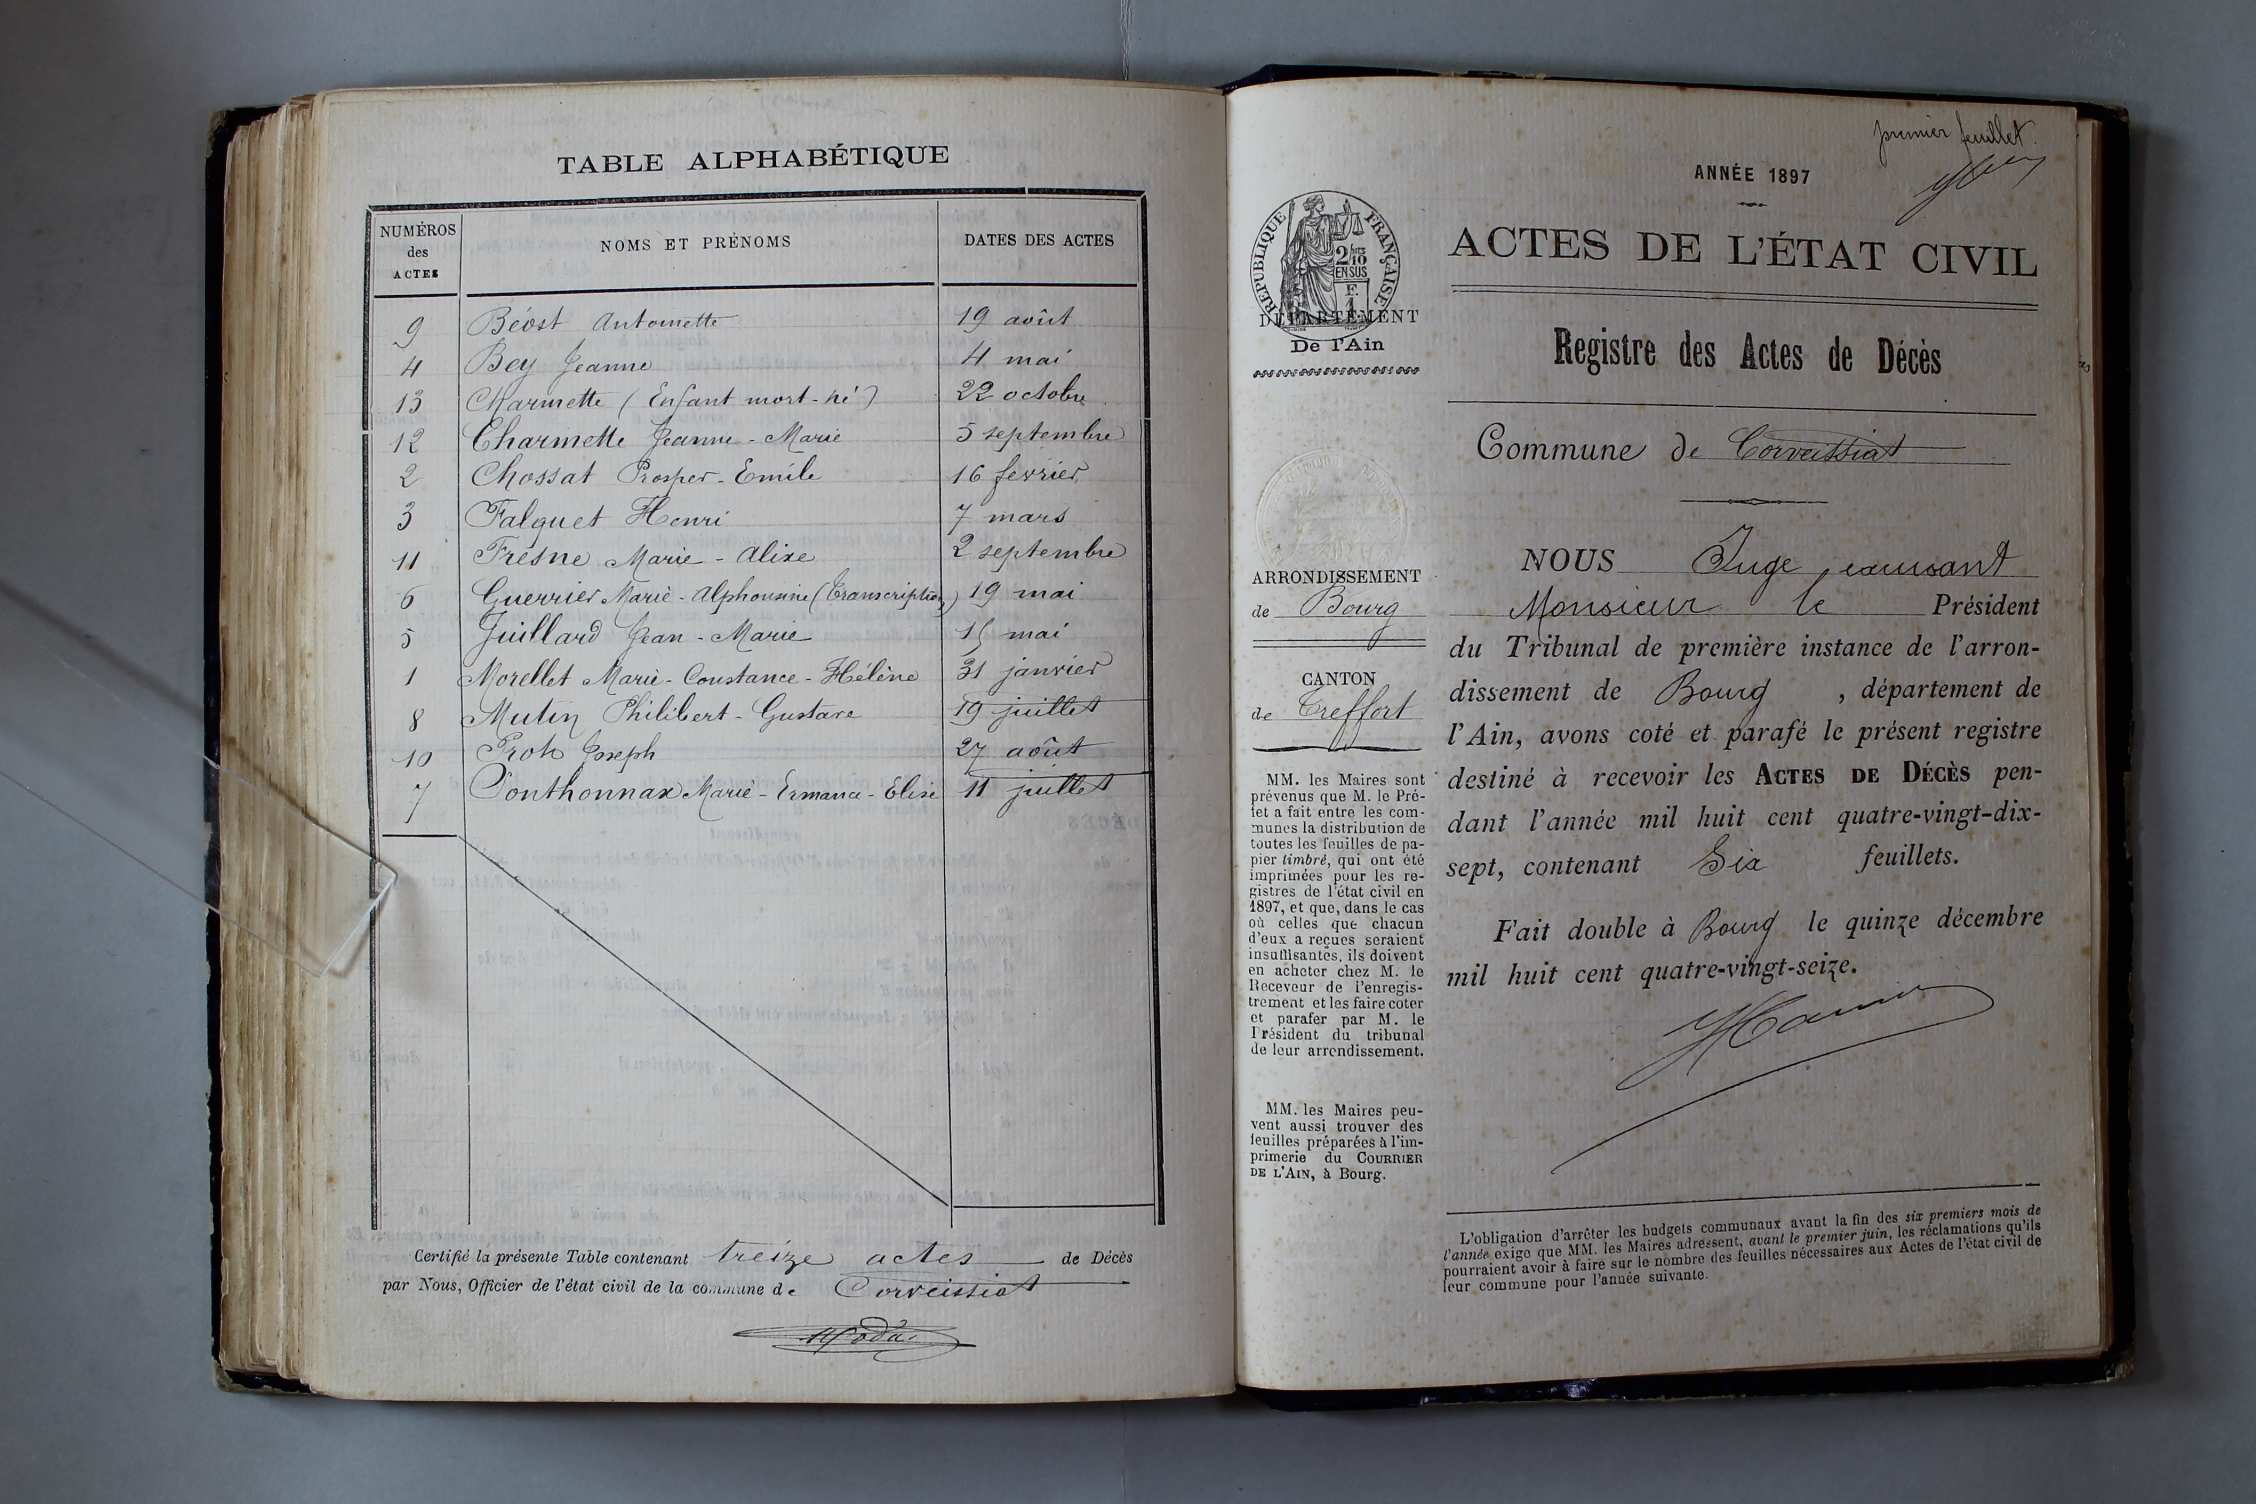 TABLE ALPHABÉTIQUE
NUMÉROS des ACTES
NOMS ET PRÉNOMS
DATES DES ACTES
9 Béost Antoinette 19 août
4 Bey Jeanne 4 mai
13 Charmette (Enfant mort-né) 22 octobre
12 Charmette Jeanne-Marie 5 septembre
2 Chossat Prosper-Emile 16 fevrier
3 Falquet Henri 7 mars
11 Fresne Marie-Alixe 2 septembre
6 Guerrier Marie-Alphonsine (Transcription) 19 mai
5 Juillard Jean-Marie 15 mai
1 Morellet Marie-Constance-Hélène 31 janvier
8 Mutin Philibert-Gustave 19 juillet
10 Joseph 27 août
7 Ponthonnax Marie-Ermance-Elise 11 juillet
Certifié la présente Table contenant treize actes de Décès
par Nous, Officier de l'état civil de la commune de Corveissiat
premier feuillet.
ANNÉE 1897
RÉPUBLIQUE FRANÇAISE
2/10
EN SUS
F.
1
DÉPARTEMENT
De l'Ain
ACTES DE L'ÉTAT CIVIL
Registre des Actes de Décès
Commune de Corveissiat
ARRONDISSEMENT
de Bourg
CANTON
de Treffort
MM. les Maires sont
prévenus que M. le Pré-
fet a fait entre les com-
munes la distribution de
toutes les feuilles de pa-
pier timbré, qui ont été
imprimées pour les re-
gistres de l'état civil en
1897, et que, dans le cas
où celles que chacun
d'eux a reçues seraient
insuffisantes, ils doivent
en acheter chez M. le
Receveur de l'enregis-
trement et les faire coter
et parafer par M. le
Président du tribunal
de leur arrondissement.
MM. les Maires peu-
vent aussi trouver des
feuilles préparées à l'im-
primerie du COURRIER
DE L'AIN, à Bourg.
NOUS Juge remplaçant
Monsieur le Président
du Tribunal de première instance de l'arron-
dissement de Bourg, département de
l'Ain, avons coté et parafé le présent registre
destiné à recevoir les ACTES DE DÉCÈS pen-
dant l'année mil huit cent quatre-vingt-dix-
sept, contenant Six feuillets.
Fait double à Bourg le quinze décembre
mil huit cent quatre-vingt-seize.
L'obligation d'arrêter les budgets communaux avant la fin des six premiers mois de
l'année exige que MM. les Maires adressent, avant le premier juin, les réclamations qu'ils
pourraient avoir à faire sur le nombre des feuilles nécessaires aux Actes de l'état civil de
leur commune pour l'année suivante.